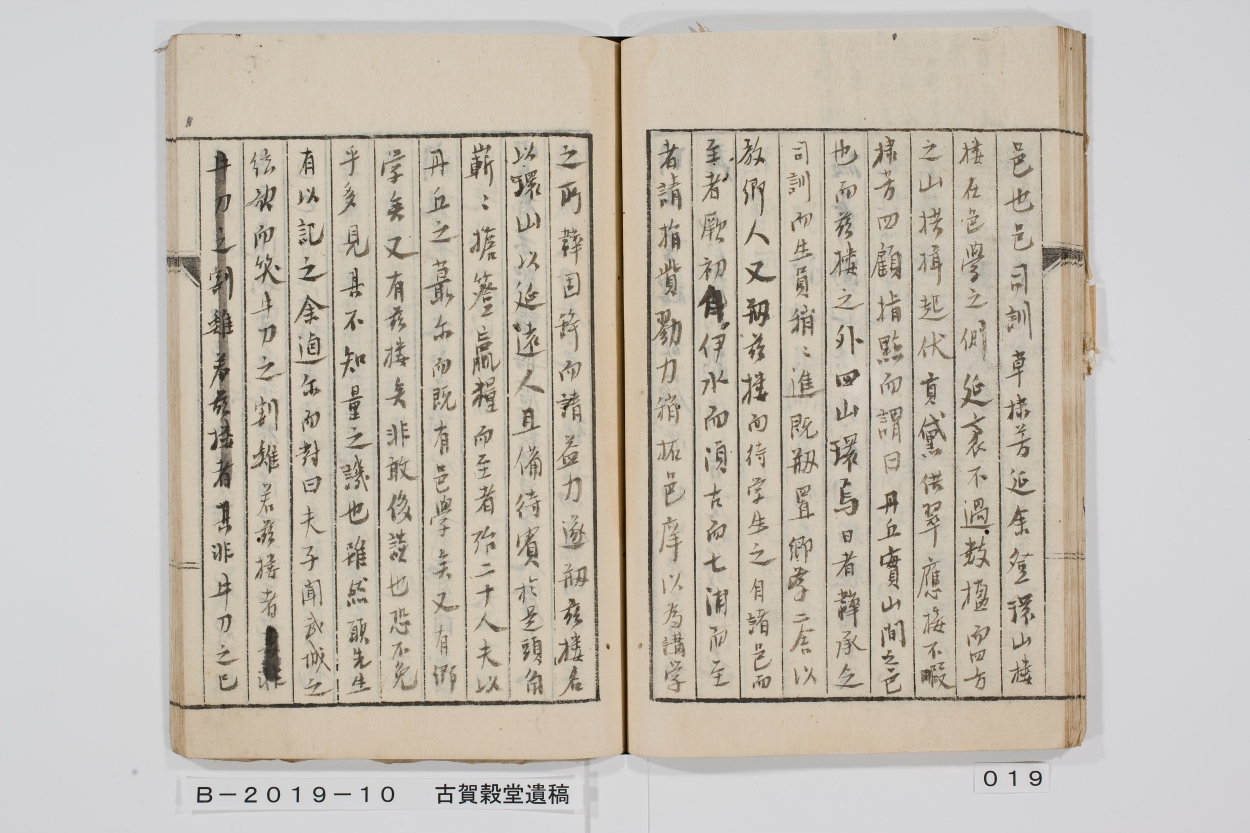 邑也邑司訓草棣芳延余登環山樓
樓在邑學之側延袤不過數楹而四方
之山拱揖起伏貢黛供翠應接不暇
棣芳四顧指點而謂曰丹丘實山間之邑
也而玆樓之外四山環焉日者薜承乏
司訓而生員稍〻進既刱置鄉學二舍以
教鄉人又刱玆樓而待學生之自諸邑而
至者厥初自伊水而須古而七浦而至
者請捐貲勠力稍拓邑庠以為講学
之所薜因籍而請益力遂刱玆樓名
以環山以延遠人且備待賓於是頭角
嶄〻擔簦贏糧而至者殆二十人夫以
丹丘之蕞尔而既有邑學矣又有鄉
学矣又有玆樓矣非敢後諉也恐不免
乎多見其不知量之譏也雖然願先生
有以記之余逌尔而對曰夫子聞武城之
絃歌而笑牛刀之割雞若玆樓者
牛刀之割雞若玆樓者其非牛刀之已
B－2019－10　古賀穀堂遺稿
019